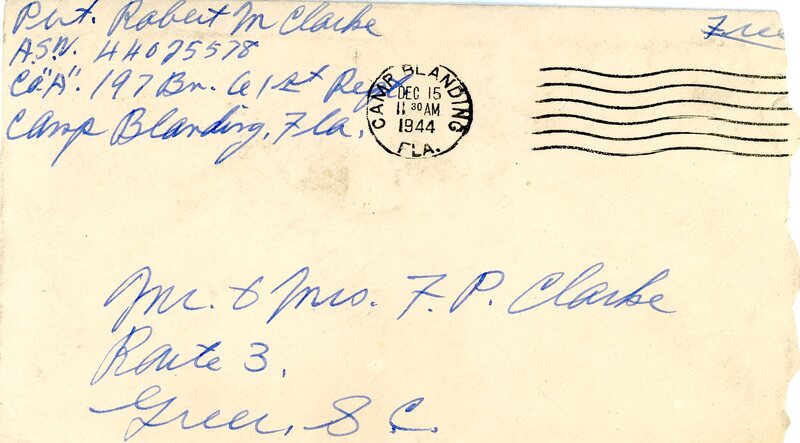 Pvt. Robert M Clarke
A.S.N. 44025578
Co. "A". 197 Bn. 61st Regt
Camp Blanding, Fla.
Free
CAMP BLANDING
DEC 15
11 30 AM
1944
FLA.
Mr. & Mrs. F. P. Clarke
Route 3.
Greer, S.C.